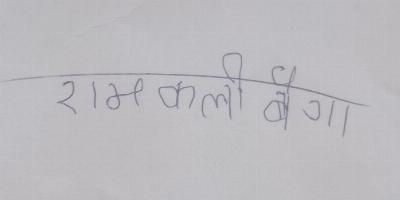 रामकली बैगा